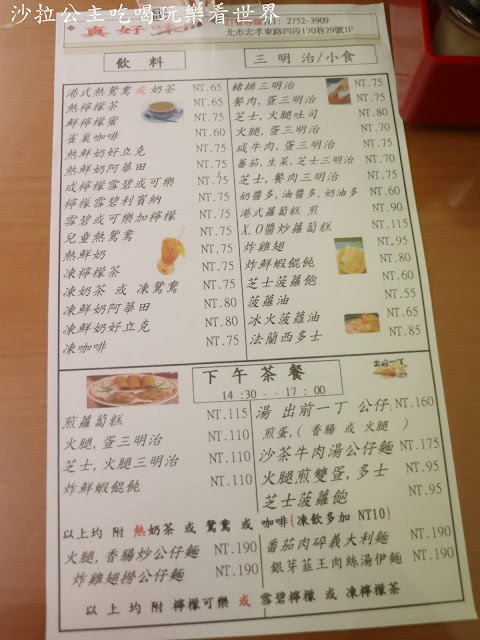 沙拉公主吃喝玩樂看世界
真好
2752-3909
北市忠孝東路四段170巷29號1F
飲料
三明治/小食
港式熱鴛鴦或奶茶 NT.65
熱檸檬茶 NT.65
鮮檸檬蜜 NT.75
雀巢咖啡 NT.60
熱鮮奶好立克 NT.75
熱鮮奶阿華田 NT.75
咸檸檬雪碧或可樂 NT.75
檸檬雪碧利賓納 NT.75
雪碧或可樂加檸檬 NT.75
兒童熱鴛鴦 NT.75
熱鮮奶 NT.75
凍檸檬茶 NT.75
凍奶茶 或 凍鴛鴦 NT.75
凍鮮奶阿華田 NT.80
凍鮮奶好立克 NT.80
凍咖啡 NT.75
豬排三明治 NT.75
餐肉,蛋三明治 NT.75
芝士,火腿吐司 NT.80
火腿,蛋三明治 NT.70
咸牛肉,蛋三明治 NT.75
蕃茄,生菜,芝士三明治 NT.70
芝士,餐肉三明治 NT.75
奶醬多,油醬多,奶油多 NT.60
港式蘿蔔糕 煎 NT.90
X.O醬炒蘿蔔糕 NT.115
炸雞翅 NT.95
炸鮮蝦餛飩 NT.80
芝士菠蘿飽 NT.60
菠蘿油 NT.55
冰火菠蘿油 NT.65
法蘭西多士 NT.85
下午茶餐
14:30--17:00
出前一丁
煎蘿蔔糕 NT.115
火腿,蛋三明治 NT.110
芝士,火腿三明治 NT.110
炸鮮蝦餛飩 NT.110
湯 出前一丁 公仔 NT.160
煎蛋,(香腸 或 火腿 )
沙茶牛肉湯公仔麵 NT.175
火腿煎雙蛋,多士 NT.95
芝士菠蘿飽 NT.95
以上均 附 熱奶茶 或 鴛鴦 或 咖啡{凍飲多加 NT10}
火腿,香腸炒公仔麵 NT.190
炸雞翅撈公仔麵 NT.190
番茄肉碎義大利麵 NT.190
銀芽韮王肉絲湯伊麵 NT.190
以 上 均 附 檸檬可樂 或 雪碧檸檬 或 凍檸檬茶